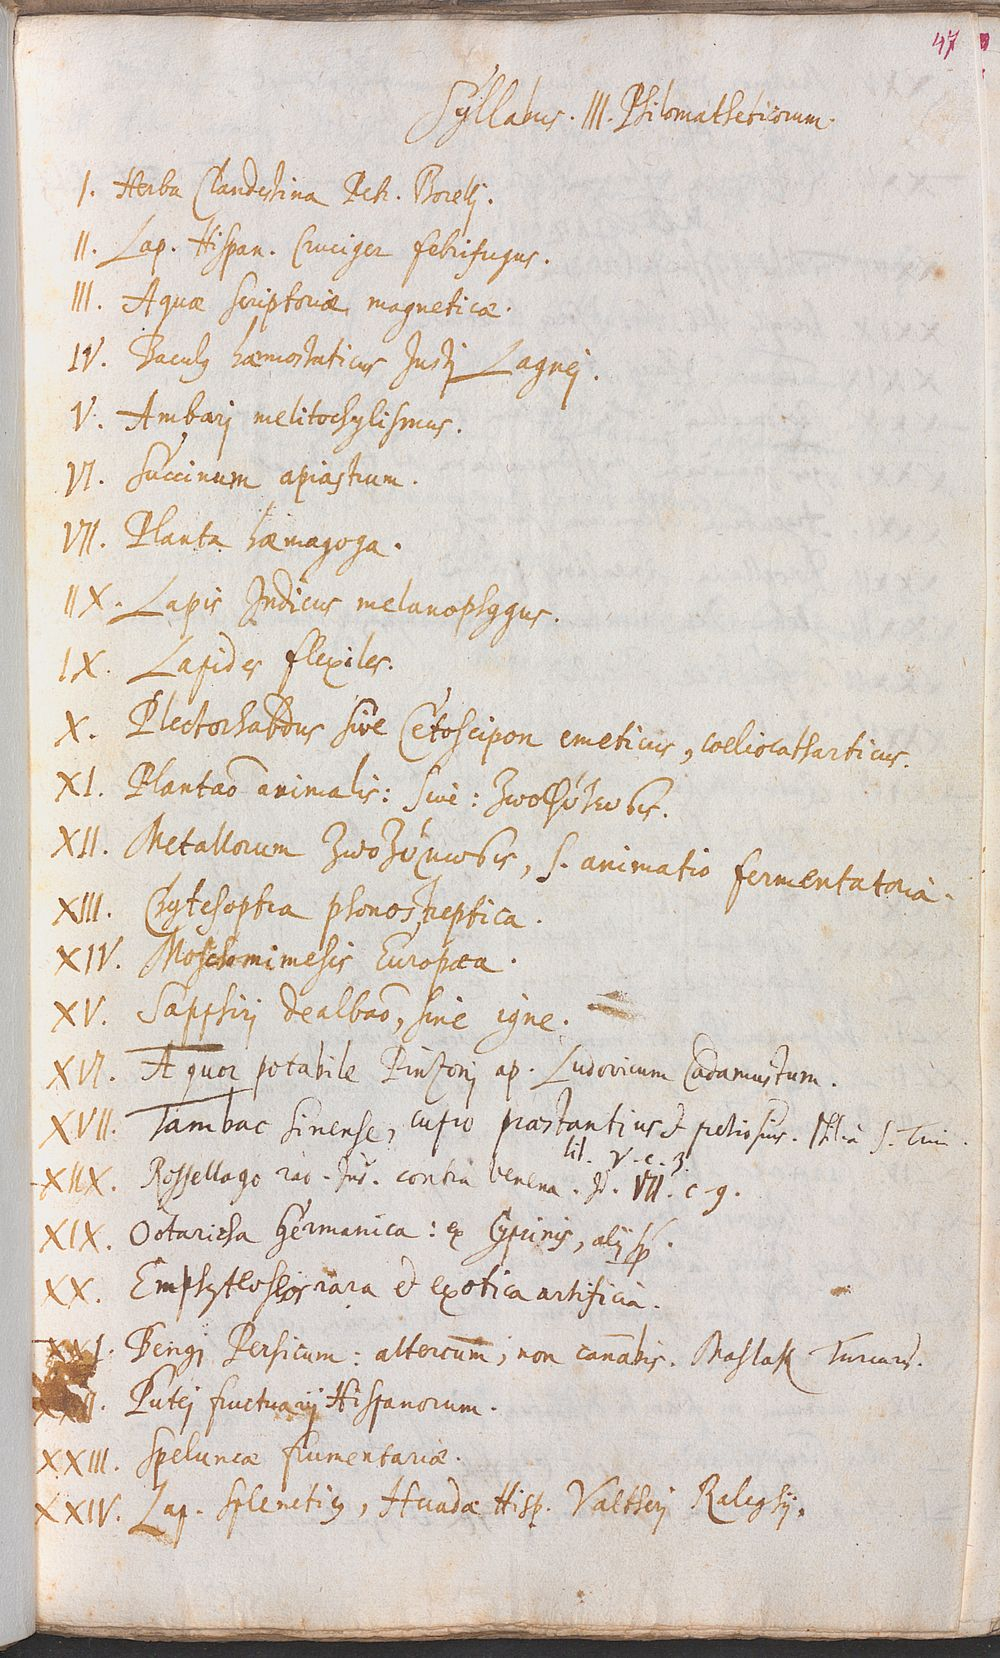 47
Syllabus. III. Philomatheticorum.
I. Herba Clandestina Petr. Borelli.
II. Lap. Hispan. Cruciger febrifugus.
III. Aquæ scriptoriæ magneticæ.
IV. Baculus hæmostaticus Justj Lagnej.
V. Ambarj melitochylismus.
VI. Succinum apiastrum.
VII. Planta hæmagoga.
IIX. Lapis Indicus melanophygus.
IX. Lapides flexiles.
X. Plectorhabdus sive Cetoscipon emeticus, cœliocatharticus.
XI. Plantaō animalis: sive:
XII. Metallorum , s. animatio fermentatoria.
XIII. Chytesoptra phonostreptica.
XIV. Moschomimesis Europæa.
XV. Sapphirj dealbaō, sine igne.
XVI. Æquor potabile Pinzonj ap. Ludovicum Cadamustum.
XVII. Tambac sinense, cupro præstantius & pretiosius.
lib. V. c. 3.
XIIX. Rossellago contra venena. VII. c. 9.
XIX. Ootaricha Germanica: ex Cyprinis, alijsq.
XX. rara & exotica artificia.
XXI. Bengj Persicum: altercum, non cannabis. Maslak Turcarum.
XXII. Putej fructuarij Hispanorum.
XXIII. Speluncæ frumentariæ.
XXIV. Lap. spleneticus, Hisp. Valtherj Raleghij.